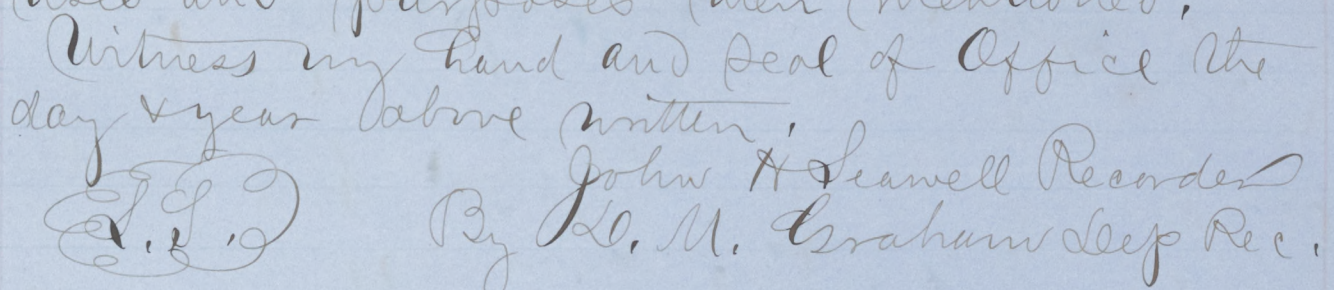 uses and purposes therein mentioned.
Witness my hand and seal of Office the
day & year above written.
John H Seawell Recorder
L.S. By D. M. Graham Dep Rec.